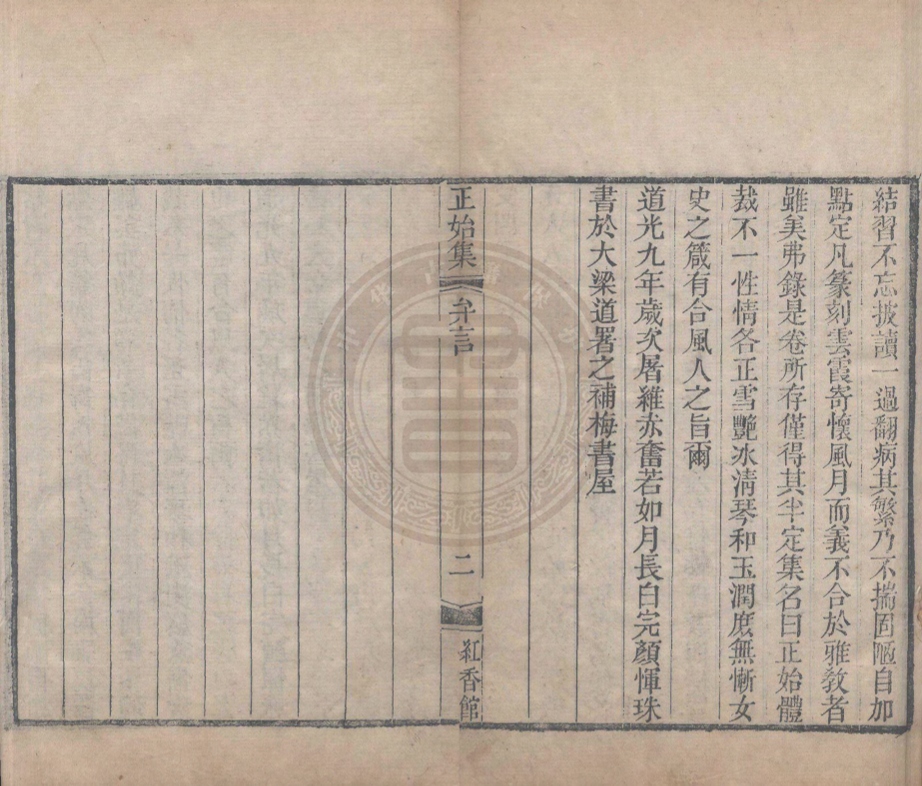 結習不忘披讀一過翻病其繁乃不揣固陋自加
點定凡篆刻雲霞寄懷風月而義不合於雅教者
雖美弗錄是卷所存僅得其半定集名曰正始體
裁不一性情各正雪艷冰清琴和玉潤庶無慚女
史之箴有合風人之旨爾
道光九年歲次屠維赤奮若如月長白完顏惲珠
書於大梁道署之補梅書屋
正始集 弁言 二 紅香館